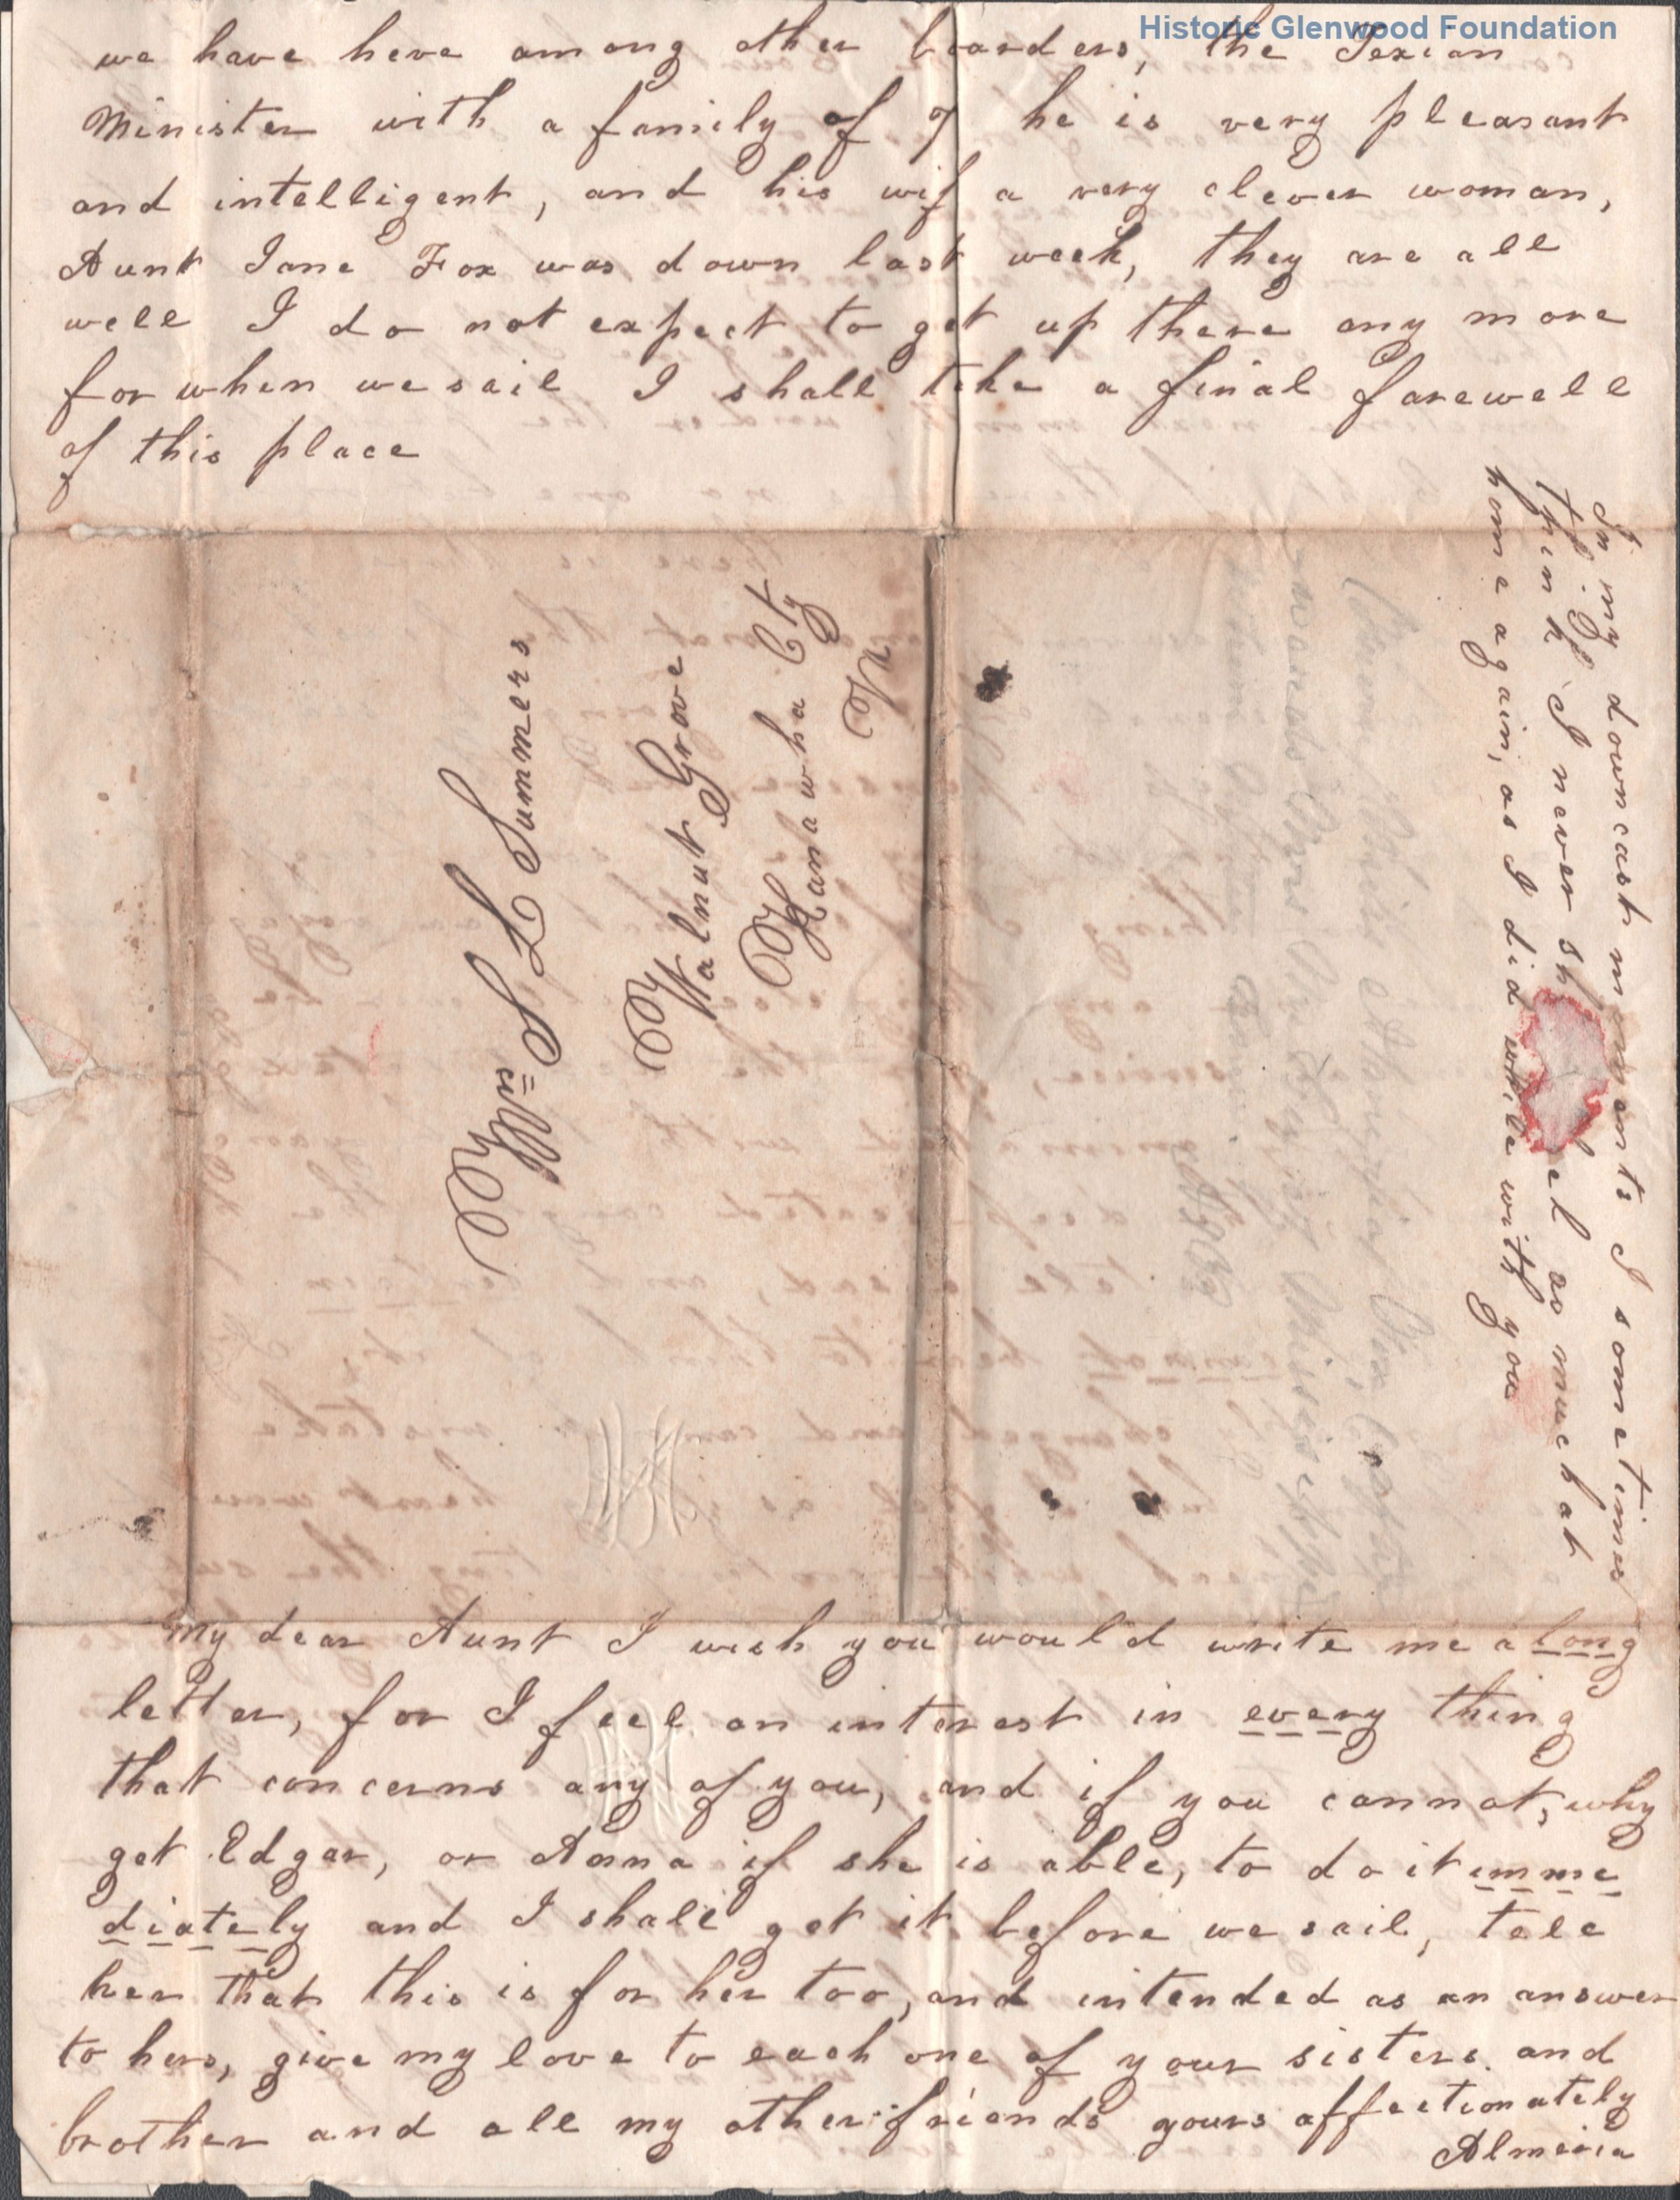 Historic Glenwood Foundation
we have here among other boarders, the Texian
Minister with a family of 7 he is very pleasant
and intelligent, and his wif a very clever woman,
Aunt Jane Fox was down last week, they are all
well I do not expect to get up there any more
for when we sail I shall take a final farewell
of this place
In my downcast moments I sometimes
think I never sh el as much at
home again, as I did while with you
Mrs S L Summers
Walnut Grove
Kanawha Cty
Va
My dear Aunt I wish you would write me a long
letter, for I feel an interest in every thing
that concerns any of you, and if you cannot, why
get Edgar, or Anna if she is able, to do it imme
diately and I shall get it before we sail, tell
her that this is for her too, and intended as an answer
to hers, give my love to each one of your sisters and
brother and all my other friends yours affectionately
Almeria